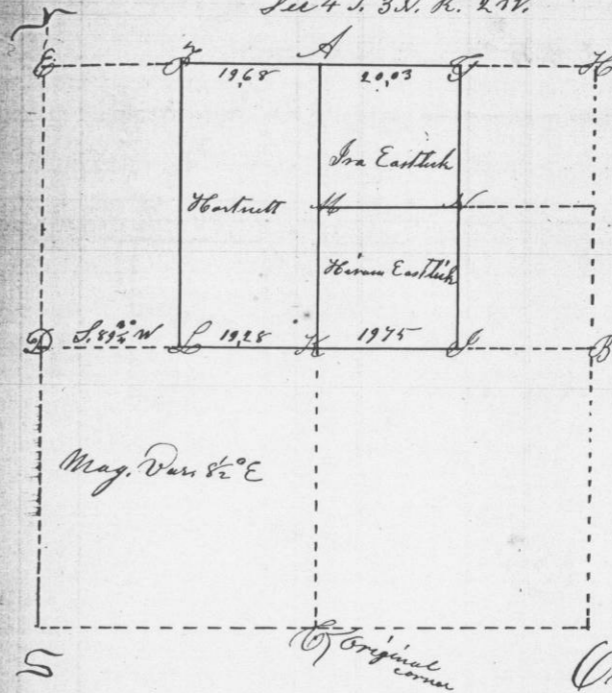 Sec 4 T. 3N. R. 2W.
E F A F H
19,68 20,03
Ira Eastlick
Hartnett M N
Hiram Eastlick
D S. 89¾° W L 19,28 K 19 75 I B
Mag. Var. 8½° E
C Original
corner
S